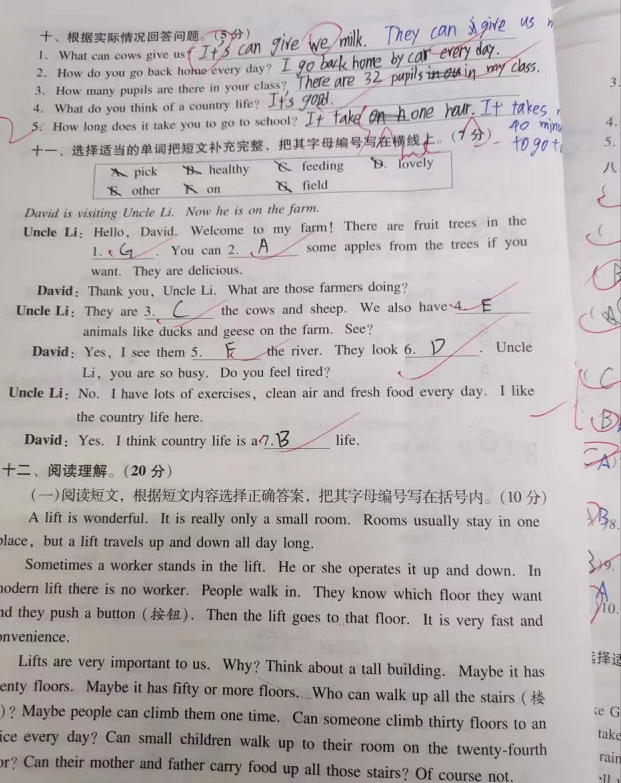 十、根据实际情况回答问题。(5分)
They can give us
1. What can cows give us? It's can give we milk.
2. How do you go back home every day? I go back home by car every day.
3. How many pupils are there in your class? There are 32 pupils in my class.
4. What do you think of a country life? It's good.
5. How long does it take you to go to school? It take one hour. It takes
40 minu
to go to
十一、选择适当的单词把短文补充完整，把其字母编号写在横线上。(7分)
A. pick B. healthy C. feeding D. lovely
E. other F. on G. field
David is visiting Uncle Li. Now he is on the farm.
Uncle Li: Hello, David. Welcome to my farm! There are fruit trees in the
1. G . You can 2. A some apples from the trees if you
want. They are delicious.
David: Thank you, Uncle Li. What are those farmers doing?
Uncle Li: They are 3. C the cows and sheep. We also have 4. E
animals like ducks and geese on the farm. See?
David: Yes, I see them 5. F the river. They look 6. D . Uncle
Li, you are so busy. Do you feel tired?
Uncle Li: No. I have lots of exercises, clean air and fresh food every day. I like
the country life here.
David: Yes. I think country life is a 7. B life.
十二、阅读理解。(20分)
(一)阅读短文，根据短文内容选择正确答案，把其字母编号写在括号内。(10分)
A lift is wonderful. It is really only a small room. Rooms usually stay in one
place, but a lift travels up and down all day long.
Sometimes a worker stands in the lift. He or she operates it up and down. In
modern lift there is no worker. People walk in. They know which floor they want
nd they push a button (按钮). Then the lift goes to that floor. It is very fast and
onvenience.
Lifts are very important to us. Why? Think about a tall building. Maybe it has
enty floors. Maybe it has fifty or more floors. Who can walk up all the stairs (楼
)? Maybe people can climb them one time. Can someone climb thirty floors to an
ice every day? Can small children walk up to their room on the twenty-fourth
or? Can their mother and father carry food up all those stairs? Of course not.
3.
4.
5.
八
A
C
B
A
B 8.
9.
A 10.
选择适
ke G
take
rain